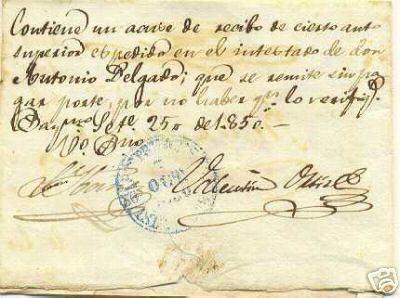 Contiene un acuse de recibo de cierto auto
superior espedido en el intestado de don
Antonio Delgado; que se remite sin pa
gar porte, por no haber qn lo verifiq.
Sete. 25 de 1850.
Valentin Ortiz
OCT
ebay